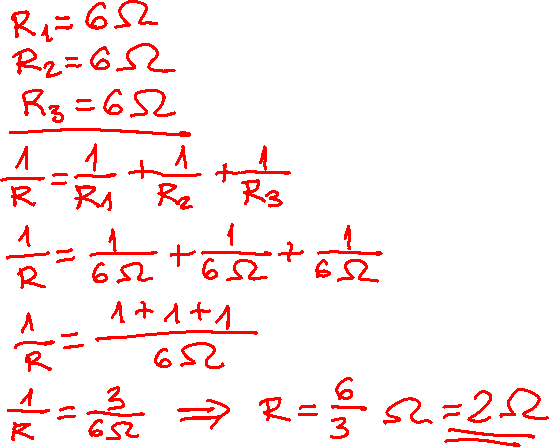 R₁ = 6 Ω
R₂ = 6 Ω
R₃ = 6 Ω
1/R = 1/R₁ + 1/R₂ + 1/R₃
1/R = 1/6Ω + 1/6Ω + 1/6Ω
1/R = (1+1+1)/6Ω
1/R = 3/6Ω ⇒ R = 6/3 Ω = 2 Ω